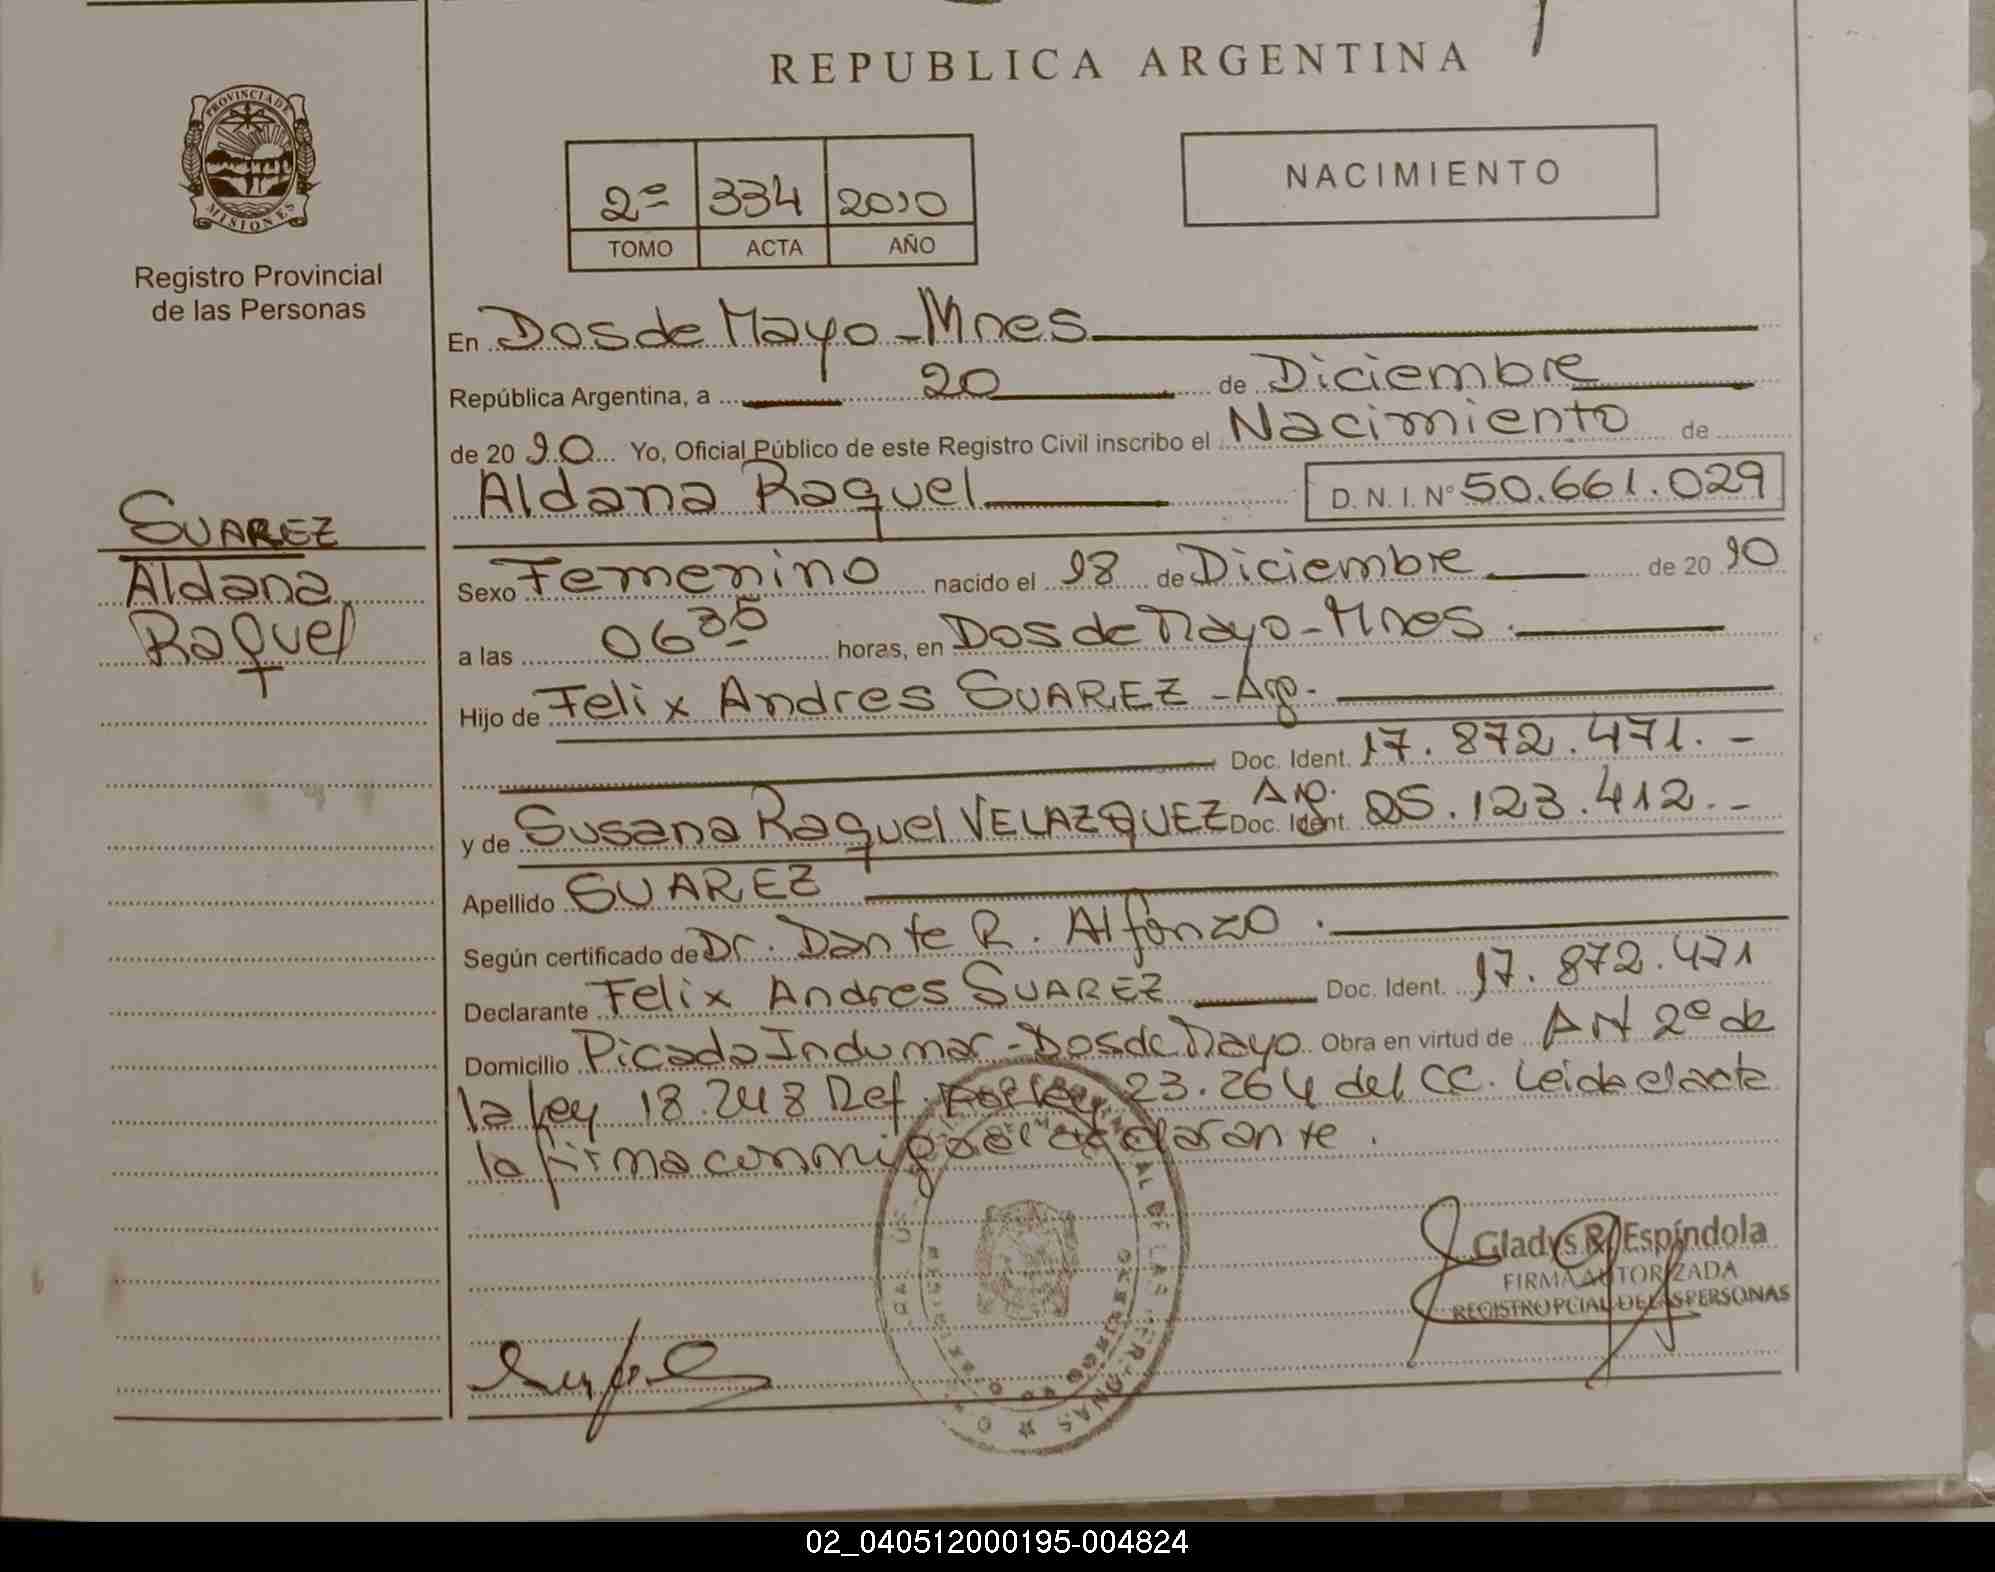 REPUBLICA ARGENTINA
PROVINCIA DE
MISIONES
Registro Provincial
de las Personas
2º 334 2010
TOMO ACTA AÑO
NACIMIENTO
En Dos de Mayo - Mnes
República Argentina, a 20 de Diciembre
de 20 10 Yo, Oficial Público de este Registro Civil inscribo el Nacimiento de
Aldana Raquel D. N. I. Nº 50.661.029
SUAREZ
Aldana
Raquel
Sexo Femenino nacido el 18 de Diciembre de 20 10
a las 06 35 horas, en Dos de Mayo - Mnes.
Hijo de Felix Andres SUAREZ - Arg.
Doc. Ident. 17.872.471.-
y de Susana Raquel VELAZQUEZ Arg. Doc. Ident. 25.123.412.-
Apellido SUAREZ
Según certificado de Dr. Dante R. Alfonzo.
Declarante Felix Andres SUAREZ Doc. Ident. 17.872.471
Domicilio Picada Indumar - Dos de Mayo Obra en virtud de Art 2º de
la Ley 18.248 Ref. Por Ley 23.264 del CC. Leida el acta
la firma conmigo el declarante.
Gladys R. Espíndola
FIRMA AUTORIZADA
REGISTRO PCIAL DE LAS PERSONAS
02_040512000195-004824